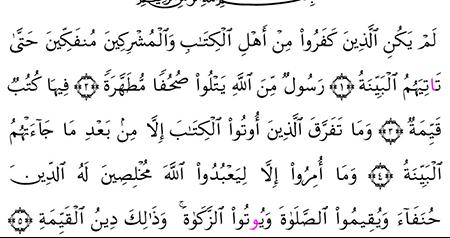 لَمْ يَكُنِ الَّذِينَ كَفَرُوا۟ مِنْ أَهْلِ الْكِتَٰبِ وَالْمُشْرِكِينَ مُنفَكِّينَ حَتَّىٰ
تَاتِيَهُمُ الْبَيِّنَةُ ﴿١﴾ رَسُولٌ مِّنَ اللَّهِ يَتْلُوا۟ صُحُفًا مُّطَهَّرَةً ﴿٢﴾ فِيهَا كُتُبٌ
قَيِّمَةٌ ﴿٣﴾ وَمَا تَفَرَّقَ الَّذِينَ أُوتُوا۟ الْكِتَٰبَ إِلَّا مِنۢ بَعْدِ مَا جَآءَتْهُمُ
الْبَيِّنَةُ ﴿٤﴾ وَمَا أُمِرُوا۟ إِلَّا لِيَعْبُدُوا۟ اللَّهَ مُخْلِصِينَ لَهُ الدِّينَ
حُنَفَآءَ وَيُقِيمُوا۟ الصَّلَوٰةَ وَيُوتُوا۟ الزَّكَوٰةَ ۚ وَذَٰلِكَ دِينُ الْقَيِّمَةِ ﴿٥﴾